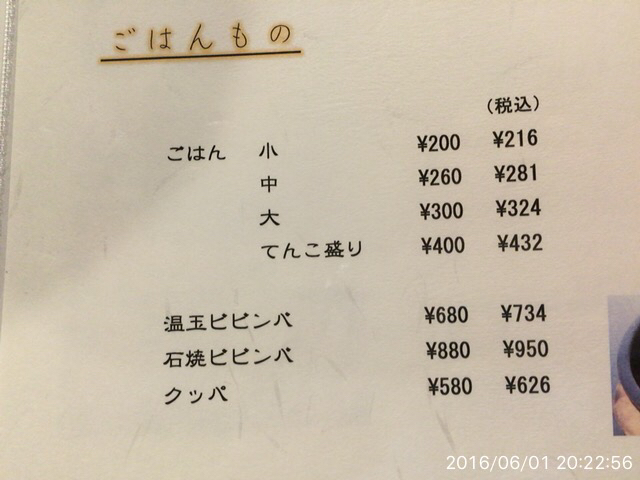 ごはんもの
(税込)
ごはん 小 ¥200 ¥216
中 ¥260 ¥281
大 ¥300 ¥324
てんこ盛り ¥400 ¥432
温玉ビビンバ ¥680 ¥734
石焼ビビンバ ¥880 ¥950
クッパ ¥580 ¥626
2016/06/01 20:22:56